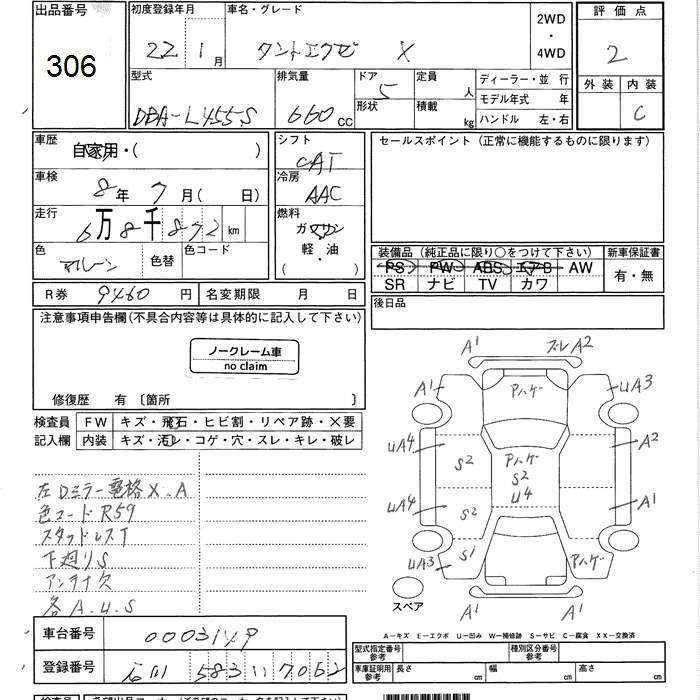 出品番号 初度登録年月 車名・グレード 2WD ・ 4WD 評価点
306 22 1月 タントエグゼ X 2
型式 排気量 ドア 定員 ディーラー・並行 外装 内装
DBA-L455S 660 CC 5 形状 人 積載 kg モデル年式 年 ハンドル 左・右 C
車歴 自家用・( ) シフト CAT セールスポイント (正常に機能するものに限ります)
車検 8年 7月( 日) 冷房 AAC
走行 6万8千872km 燃料 ガソリン 軽・油 ( )
色 マルーン 色替 色コード
装備品 (純正品に限り○をつけて下さい) 新車保証書
PS PW ABS エアB AW 有・無
SR ナビ TV カワ
R券 9460円 名変期限 月 日 後日品
注意事項申告欄(不具合内容等は具体的に記入して下さい)
ノークレーム車
no claim
修復歴 有 〔箇所 〕
検査員 FW キズ・飛石・ヒビ割・リペア跡・×要
記入欄 内装 キズ・汚レ・コゲ・穴・スレ・キレ・破レ
左Dミラー電格X.A
色コードR59
スタッドレスT
下廻りS
アンテナ欠
各A.U.S
A1 ズレA2
A1 Pハゲ UA3
UA4 S2 Pハゲ S2 U4 A2
UA4 S2 A1
UA3 S1 Pハゲ
A1 A1
スペア
A-キズ E-エクボ U-凹み W-補修跡 S-サビ C-腐食 XX-交換済
車台番号
登録番号 583 7062
型式指定番号 参考 種別区分番号 参考
車庫証明用 参考 長さ cm 幅 cm 高さ cm